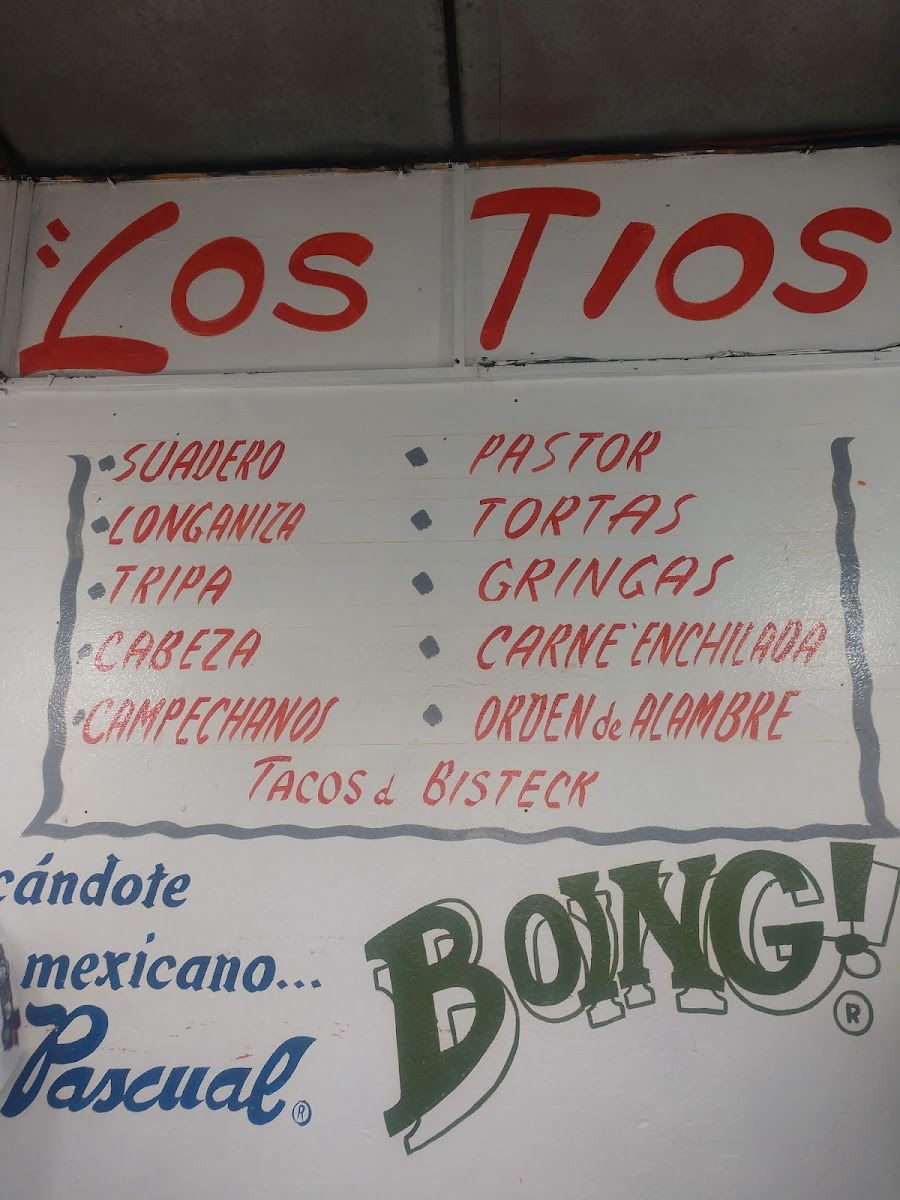 "Los Tios
• SUADERO
• LONGANIZA
• TRIPA
• CABEZA
• CAMPECHANOS
• PASTOR
• TORTAS
• GRINGAS
• CARNE ENCHILADA
• ORDEN de ALAMBRE
TACOS d BISTECK
cándote
mexicano...
Pascual®
BOING!®